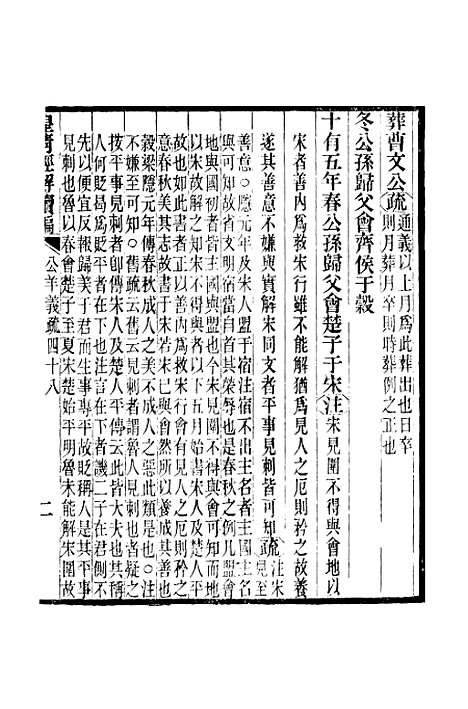 葬曹文公疏通義以上月爲此葬出也日卒
則月葬月卒則時葬例之正也
冬公孫歸父會齊侯于穀
十有五年春公孫歸父會楚子于宋注宋見圍不得與會地以
宋者善內爲救宋行雖不能解猶爲見人之厄則矜之故養
遂其善意不嫌與實解宋同文者平事見刺皆可知疏注宋
見至
善意○隱元年及宋人盟于宿注宿不出主名者主國主名
與可知故省文明宿當自首其榮辱也是春秋之例凡盟會
地與國初者皆主國與盟也今宋見圍不得與會可知而地
以宋故解之知宋不得與者以下五月始書宋人及楚人平
故也如此書者正以善內爲救宋行會有見人之厄則矜之
意春秋美其志故書于宋若宋已與會然所以養成其善意也
穀梁隱元年傳春秋成人之美不成人之惡此類是也○注
不嫌至可知○舊疏云舊云見刺者謂魯人見刺也者疑之
按平事見刺者卽傳宋人及楚人平傳云此皆大夫也其稱
人何貶曷爲貶平者在下也注言在下者譏二子在君側不
先以便宜反報歸美于君而生事專平故貶稱人是其平事
見刺也魯以春會楚子至夏宋楚始平明魯未能解宋圍故
皇清經解續編
公羊義疏四十八
二